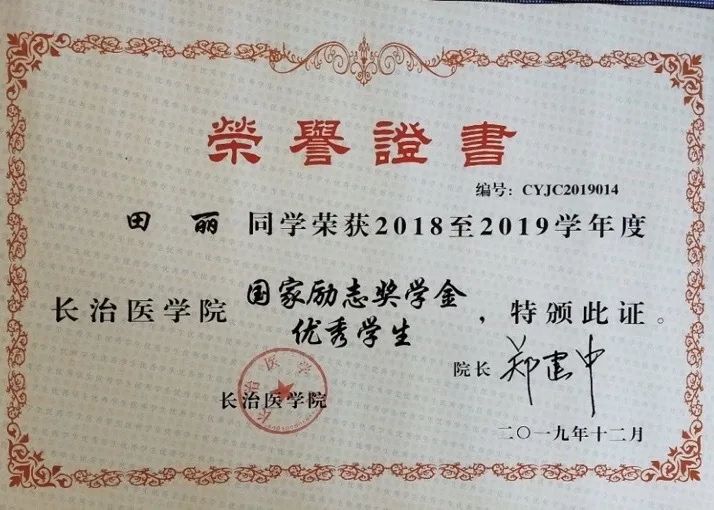 榮譽證書
编号：CYJC2019014
田丽 同学荣获2018至2019学年度
长治医学院 国家励志奖学金
优秀学生 ，特颁此证。
院长 郑建中
长治医学院
长治医学院
二〇一九年十二月